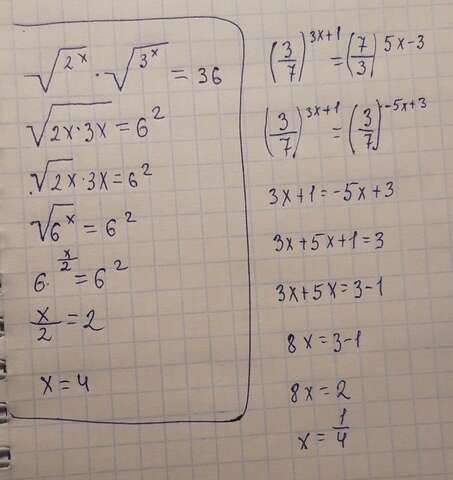 √2ˣ · √3ˣ = 36
√2x·3x = 6²
.√2x·3x = 6²
√6ˣ = 6²
6·^(x/2) = 6²
x/2 = 2
x = 4
(3/7)^(3x+1) = (7/3)^(5x-3)
(3/7)^(3x+1) = (3/7)^(-5x+3)
3x+1 = -5x+3
3x+5x+1=3
3x+5x=3-1
8x=3-1
8x=2
x=1/4